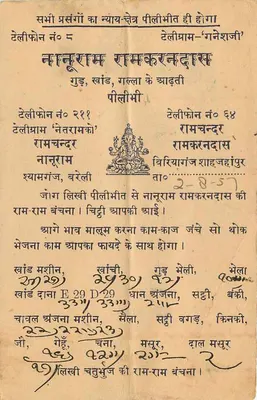 सभी प्रसंगों का न्याय-क्षेत्र पीलीभीत ही होगा
टेलीफोन नं० ८
टेलीग्राम-'गनेशजी'
नानूराम रामकरनदास
गुड़, खांड, गल्ला के आढ़ती
पीलीभी
टेलीफोन नं० २११
टेलीग्राम 'नेतरामको'
रामचन्दर
नानूराम
श्यामगंज, बरेली
टेलीफोन नं० ६४
रामचन्दर
रामकरनदास
बिरियागंज शाहजहांपुर
ता० 2-8-57
जोग लिखी पीलीभीत से नानूराम रामकरनदास की
राम-राम बंचना। चिट्ठी आपकी आई।
आगे भाव मालूम करना काम-काज जंचे सो थोक
भेजना काम आपका फायदे के साथ होगा।
खांड मशीन, खांची, गुड़ भेली, भेला
खांड दाना E 29 D 29 धान अंजना, सट्ठी, बंकी,
चावल अंजना मशीन, सेला, सट्ठी बगड़, किनकी,
जौ, गेहूँ, चना, मसूर, दाल मसूर
लिखी चतुर्भुज की राम-राम बंचना।